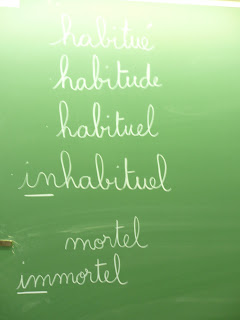 habitué
habitude
habituel
inhabituel
mortel
immortel